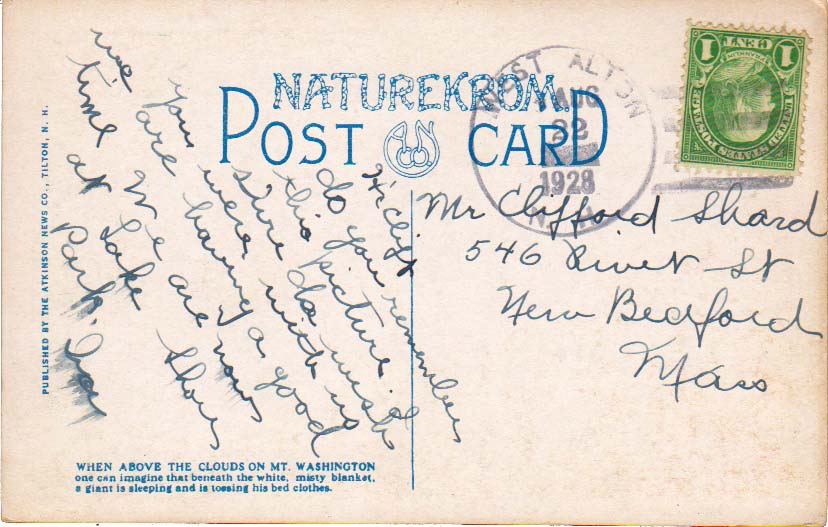 NATUREKROM.D
POST CARD
WEST ALTON
AUG
22
1928
N.H.
1 CENT 1
FRANKLIN
UNITED STATES POSTAGE
Mr Clifford Shard
546 Rivet St
New Bedford
Mass
Hi Cliff
do you remember
this picture.
sure do wish
you were with us
we are having a good
time. We are now
at Lake Shore
Park.
PUBLISHED BY THE ATKINSON NEWS CO., TILTON, N. H.
WHEN ABOVE THE CLOUDS ON MT. WASHINGTON
one can imagine that beneath the white, misty blanket,
a giant is sleeping and is tossing his bed clothes.